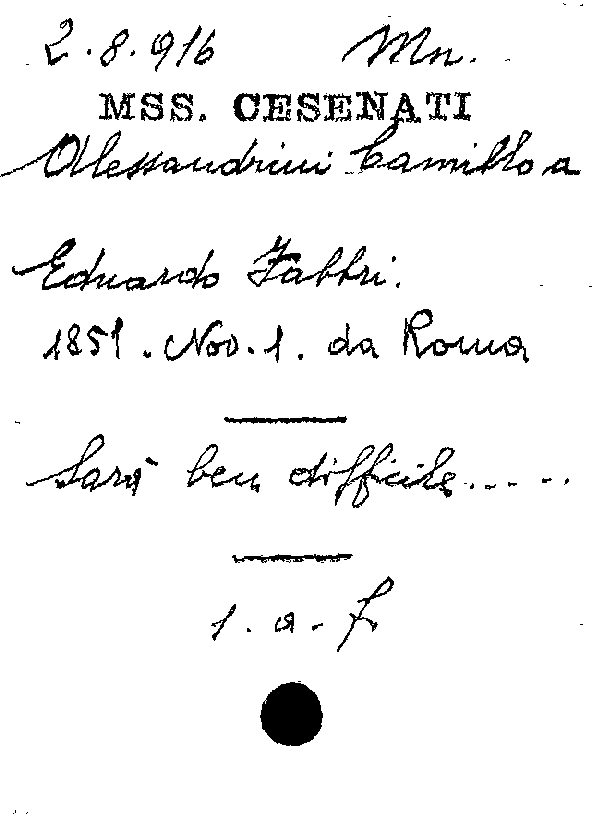 2.8.916 Mn.
MSS. CESENATI
Alessandrini Camillo a
Eduardo Fabbri.
1851. Nov. 1. da Roma
Sarà ben difficile.....
1. a. f.